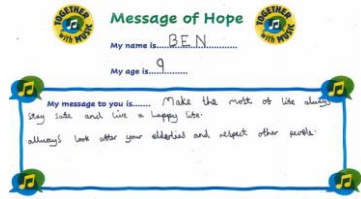 TOGETHER with MUSIC
Message of Hope
TOGETHER with MUSIC
My name is BEN
My age is 9
My message to you is...... Make the most of life always
stay safe and live a happy life.
allways look after your elderlies and respect other people.